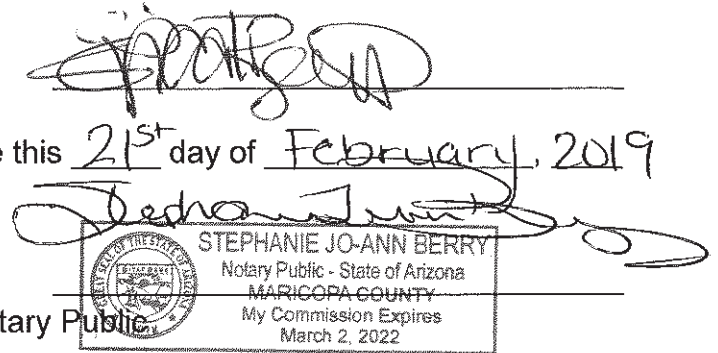 e this 21st day of February, 2019
STEPHANIE JO-ANN BERRY
Notary Public - State of Arizona
MARICOPA COUNTY
My Commission Expires
tary Public
March 2, 2022